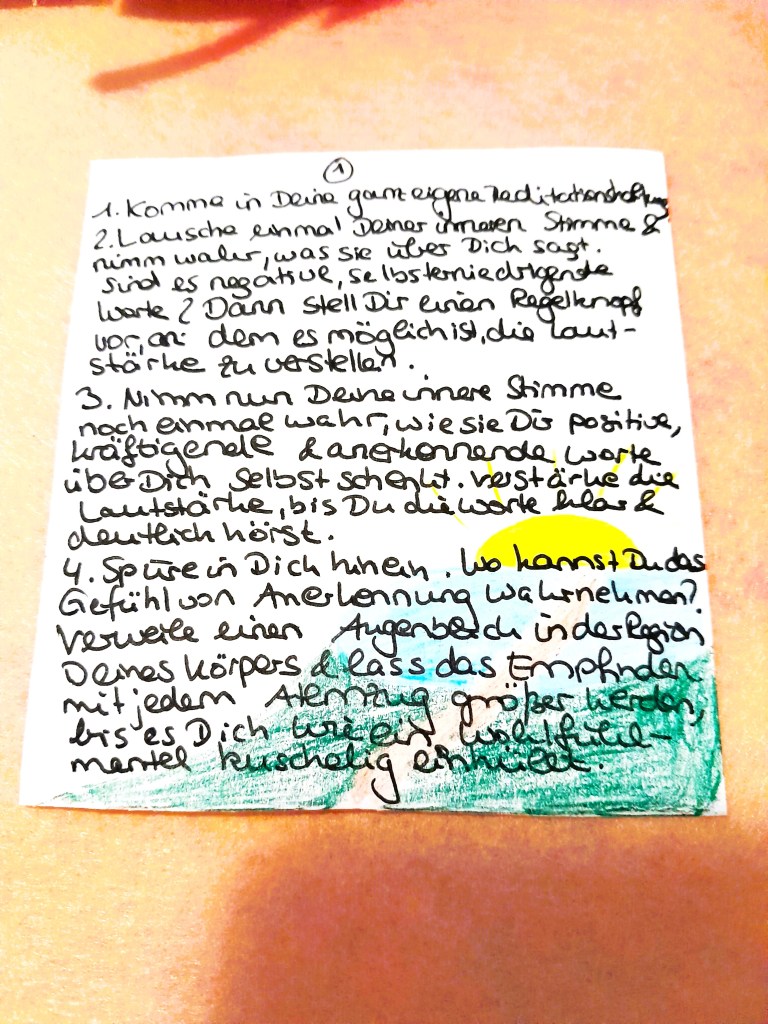 1
1. Komme in Deine ganz eigene Meditationshaltung
2. Lausche einmal Deiner inneren Stimme &
nimm wahr, was sie über Dich sagt.
Sind es negative, selbsterniedrigende
Worte? Dann stell Dir einen Regelknopf
vor, an dem es möglich ist, die Laut-
stärke zu verstellen.
3. Nimm nun Deine innere Stimme
noch einmal wahr, wie sie Dir positive,
kräftigende & anerkennende Worte
über Dich selbst schenkt. Verstärke die
Lautstärke, bis Du die Worte klar &
deutlich hörst.
4. Spüre in Dich hinein. Wo kannst Du das
Gefühl von Anerkennung wahrnehmen?
Verweile einen Augenblick in der Region
Deines Körpers & lass das Empfinden
mit jedem Atemzug größer werden,
bis es Dich wie ein Wohlfühl-
mantel kuschelig einhüllt.